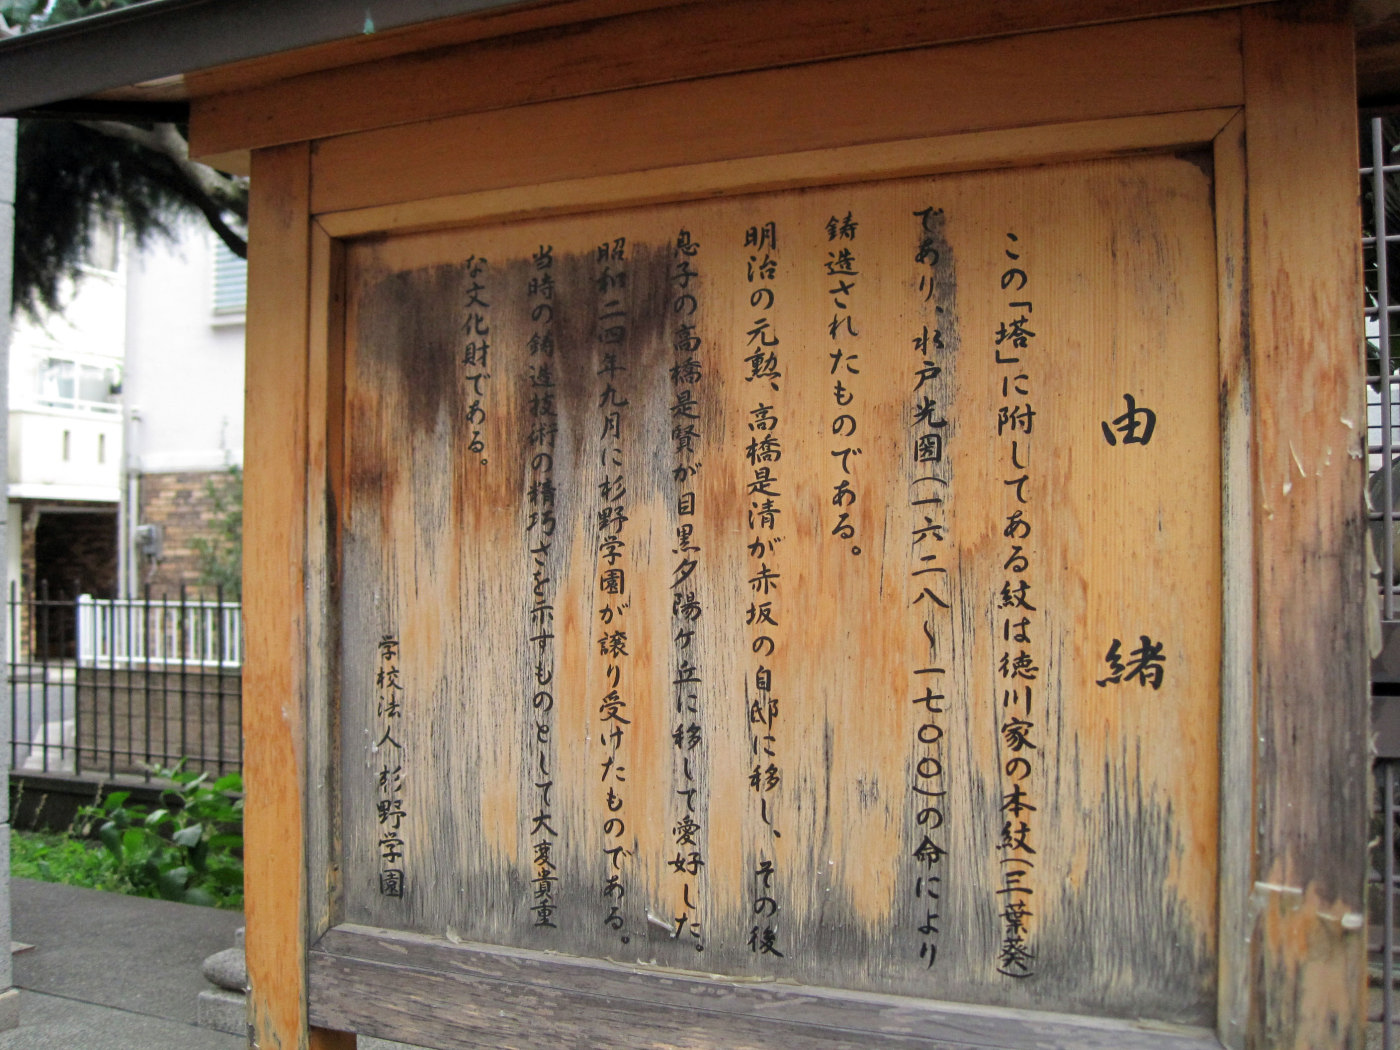 由緒
この「塔」に附してある紋は徳川家の本紋(三葉葵)
であり、水戸光圀(一六二八〜一七〇〇)の命により
鋳造されたものである。
明治の元勲、高橋是清が赤坂の自邸に移し、その後
息子の高橋是賢が目黒夕陽ケ丘に移して愛好した。
昭和二四年九月に杉野学園が譲り受けたものである。
当時の鋳造技術の精巧さを示すものとして大変貴重
な文化財である。
学校法人 杉野学園